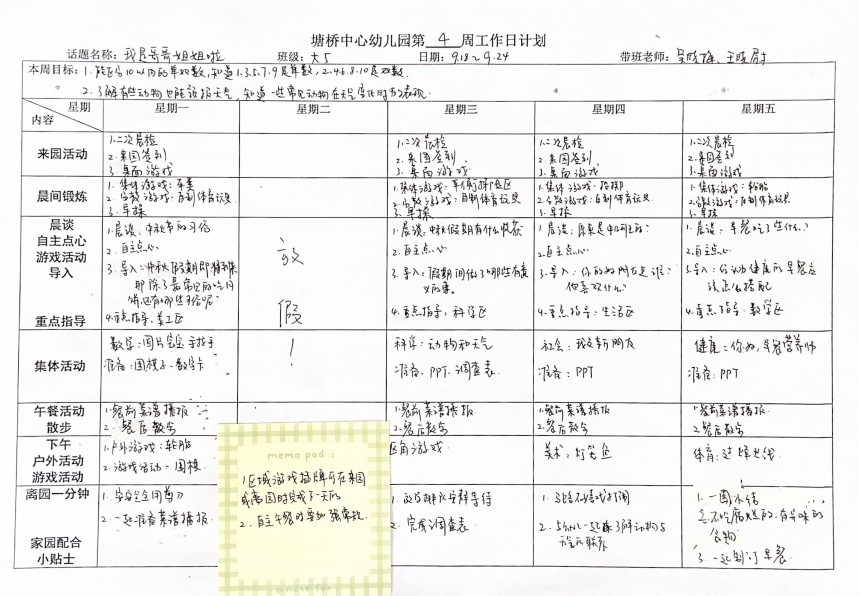 塘桥中心幼儿园第 4 周工作日计划
话题名称：我是哥哥姐姐啦 班级：大5 日期：9.18~9.24 带班老师：
本周目标：1.能区分10以内的单双数，知道1.3.5.7.9是单数，2.4.6.8.10是双数.
2.了解有些动物也能预报天气，知道一些常见动物在天气变化时的表现.
星期
内容
星期一 星期二 星期三 星期四 星期五
来园活动
1.二次晨检
2.来园签到
3.桌面游戏
1.二次晨检
2.来园签到
3.桌面游戏
1.二次晨检
2.来园签到
3.桌面游戏
1.二次晨检
2.来园签到
3.桌面游戏
晨间锻炼
1.集体游戏：
2.分散游戏：自制体育玩具
3.早操
1.集体游戏：
2.分散游戏：自制体育玩具
3.早操
1.集体游戏：
2.分散游戏：自制体育玩具
3.早操
1.集体游戏：轮胎
2.分散游戏：自制体育玩具
3.早操
晨谈
自主点心
游戏活动
导入
重点指导
1.晨谈：中秋节的习俗
2.自主点心
3.导入：中秋假期即将到来
那除了最常见的吃月
饼，还有哪些习俗呢？
4.重点指导：美工区
放
假
！
1.晨谈：中秋假期有什么收获
2.自主点心
3.导入：假期间做了哪些有意
义的事.
4.重点指导：科学区
1.晨谈：原来是中国的？
2.自主点心
3.导入：你的好朋友是谁？
他喜欢什么？
4.重点指导：生活区
1.晨谈：早餐吃了些什么？
2.自主点心
3.导入：你认为健康的早餐应
该怎么搭配
4.重点指导：数学区
集体活动
数学：图片宝宝手拉手
准备：围棋子、数字卡
科学：动物和天气
准备：PPT、调查表
社会：我交新朋友
准备：PPT
健康：你好，早餐营养师
准备：PPT
午餐活动
散步
1.餐前菜谱播报
2.餐后散步
1.餐前菜谱播报
2.餐后散步
1.餐前菜谱播报
2.餐后散步
1.餐前菜谱播报
2.餐后散步
下午
户外活动
游戏活动
1.户外游戏：轮胎
2.游戏活动：围棋
区角游戏
美术：灯笼鱼
体育：
离园一分钟
家园配合
小贴士
2.一起准备菜谱播报.
2.完成调查表.
2.与幼儿一起了解动物与
天气的联系
食物
3.一起制订早餐.
memo pad :)
1.区域游戏插牌可在来园
或离园时完成下一天的
2.自主午餐时要加强常规.